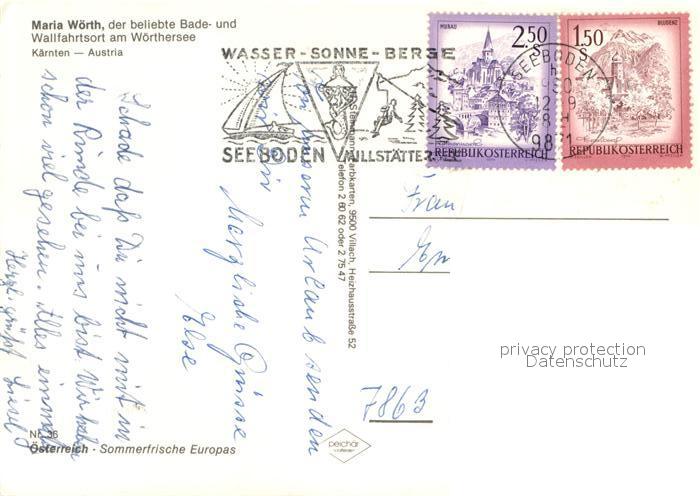 Maria Wörth, der beliebte Bade- und
Wallfahrtsort am Wörthersee
Kärnten — Austria
WASSER - SONNE - BERGE
SEEBODEN MILLSTÄTTER
SEEBODEN
9871
MURAU
2.50
S
REPUBLIK ÖSTERREICH
BLUDENZ
1.50
S
REPUBLIK ÖSTERREICH
unserm Urlaub senden
Herzliche Grüsse
Else
Schade daß Du nicht mit in
der Runde bei uns bist. Wir haben
schon viel gesehen. Alles einmalig
Herzl. grüßt Liesel
farbkarten, 9500 Villach, Heizhausstraße 52
Telefon 2 60 62 oder 2 75 47
Frau
7863
privacy protection
Datenschutz
Nr. 36
Österreich - Sommerfrische Europas
peichar